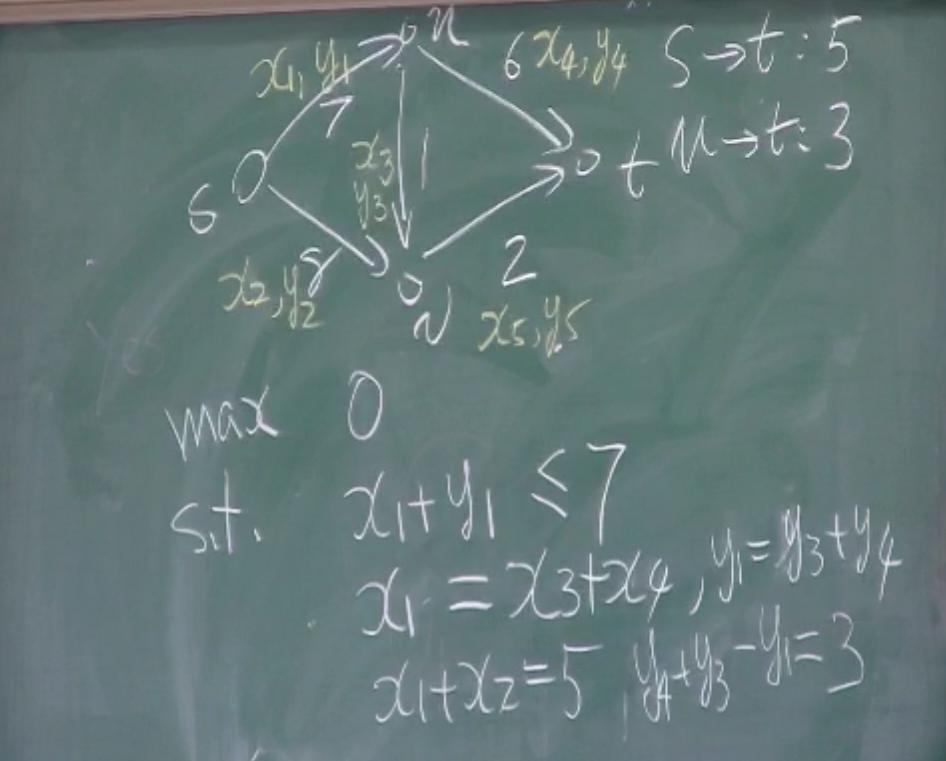 u
x1, y1
7
6 x4, y4
s→t: 5
x3
y3
1
t
u→t: 3
s
8
x2, y2
v
2
x5, y5
max 0
s.t. x1+y1 ≤7
x1 = x3+x4, y1=y3+y4
x1+x2=5, y4+y3-y1=3